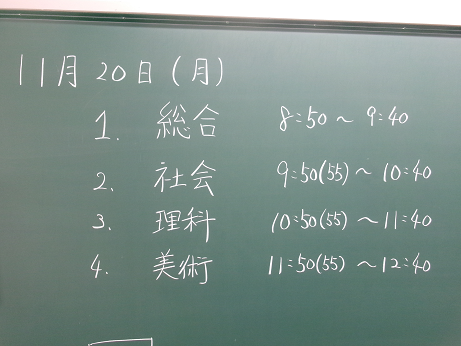 11月20日(月)
1. 総合 8:50〜9:40
2. 社会 9:50(55)〜10:40
3. 理科 10:50(55)〜11:40
4. 美術 11:50(55)〜12:40